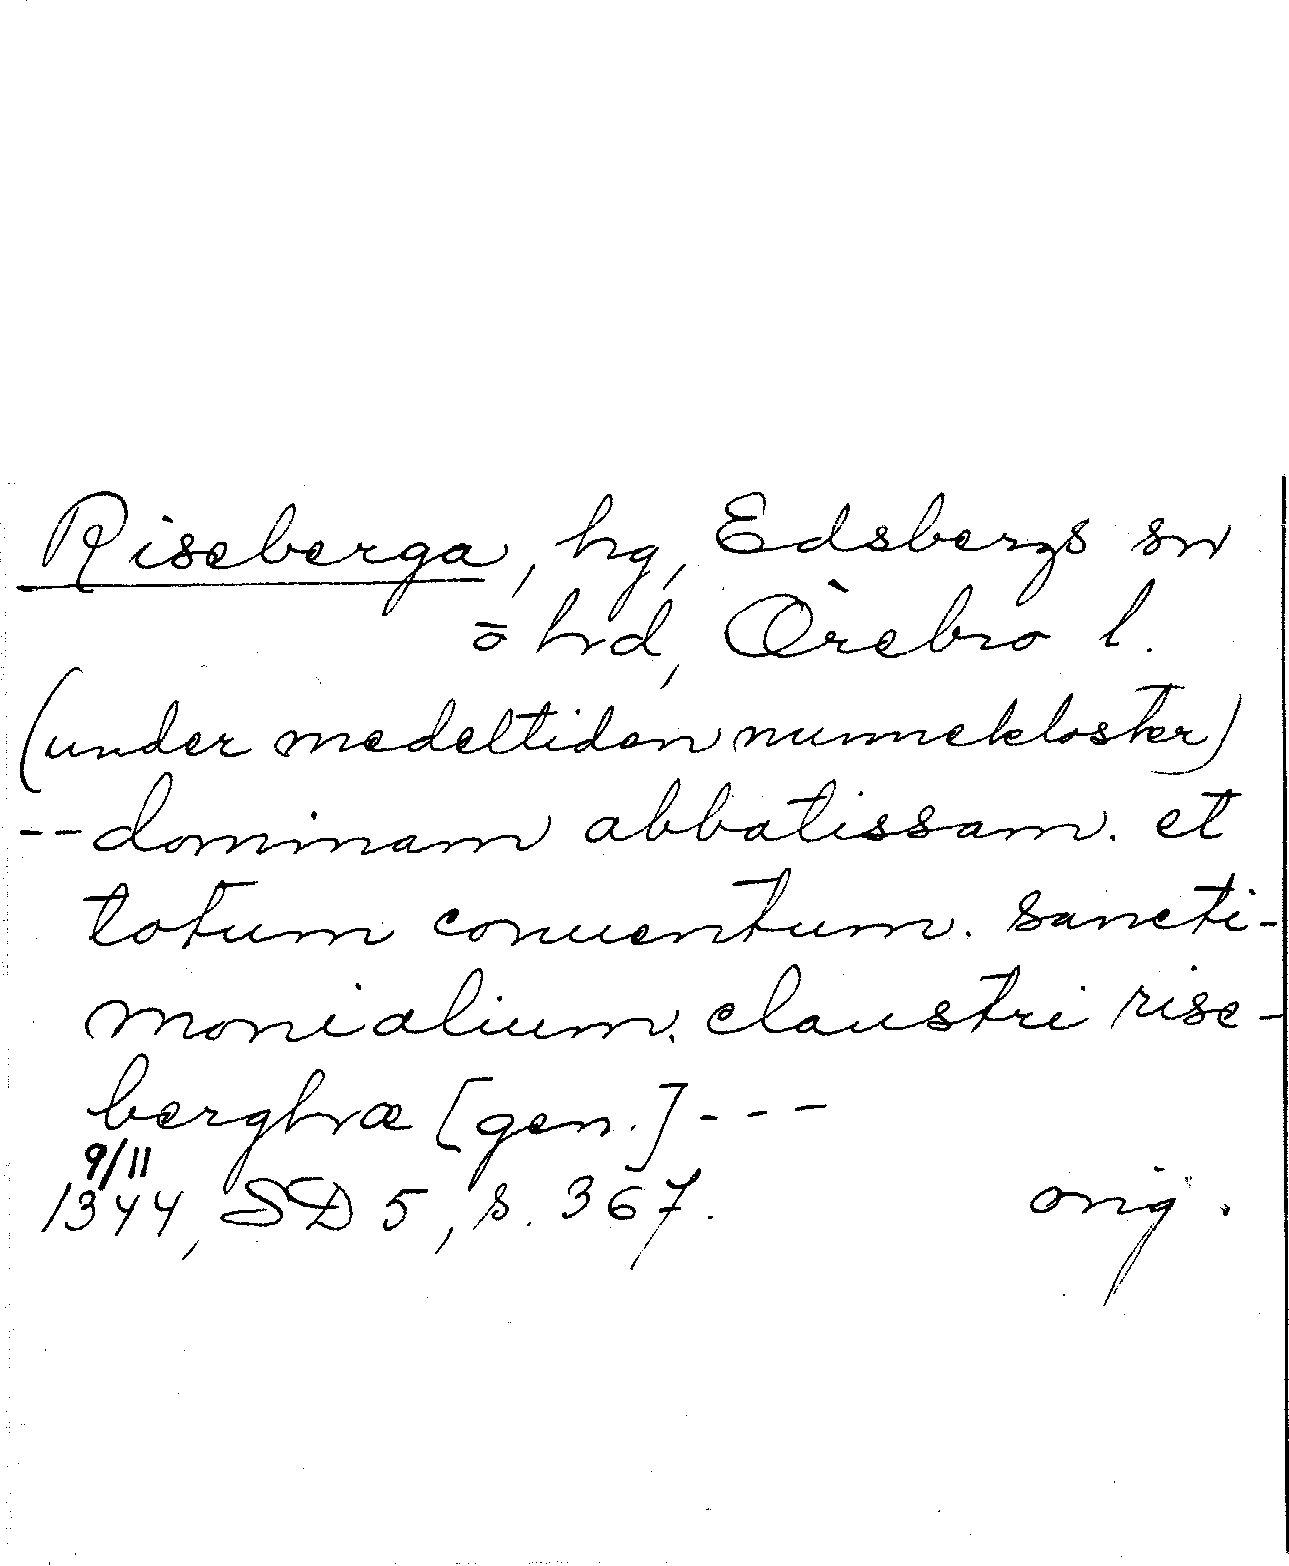 Riseberga, hg, Edsbergs sn
o hd, Örebro l.
(under medeltiden nunnekloster)
-- dominam abbatissam. et
totum conuentum. sancti-
monialium. claustri rise-
berghæ [gen.] ---
9/11
1344, SD 5, s. 367. orig.